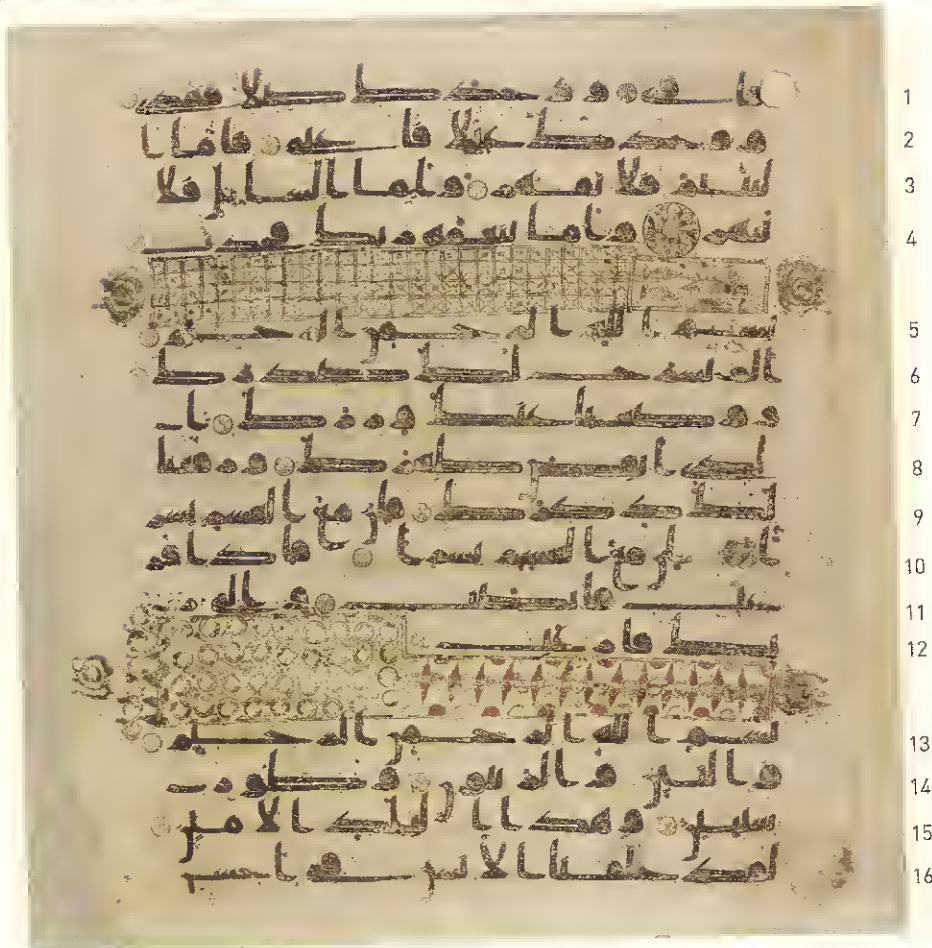 فاوى ووجدك ضالا فهدى 1
ووجدك عايلا فاغنى فاما ا 2
ليتيم فلا تقهر واما السايل فلا 3
تنهر واما بنعمة ربك فحدث 4
بسم الله الرحمن الرحيم 5
الم نشرح لك صدرك 6
ووضعنا عنك وزرك ا 7
لذي انقض ظهرك ورفعنا 8
لك ذكرك فان مع العسر يسر 9
ا ان مع العسر يسرا فاذا فر 10
غت فانصب والى 11
ربك فارغب 12
بسم الله الرحمن الرحيم 13
والتين والزيتون وطور 14
سينين وهذا البلد الامين 15
لقد خلقنا الانسن في احسن 16